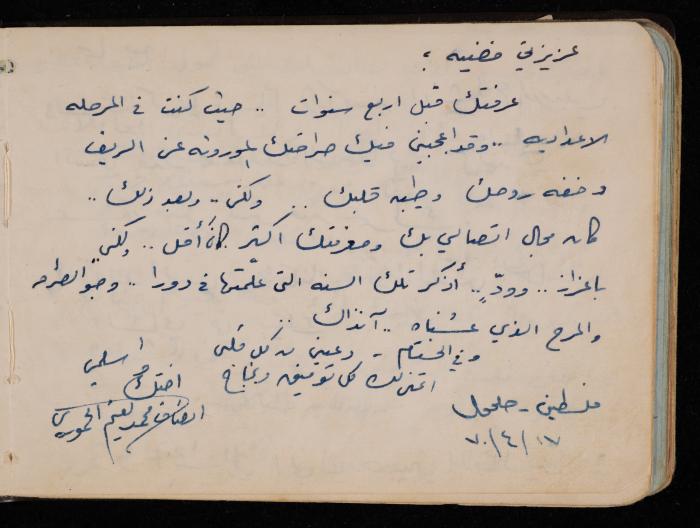 عزيزتي فضيه ؛
عرفتك قبل اربع سنوات .. حيث كنت في المرحله
الاعداديه .. وقد اعجبني فيك صراحتك الموروثه عن الريف
وخفه روحك وطيبه قلبك .. ولكن .. وبعد ذلك ..
كان مجال اتصالي بك ومعرفتك اكثر كان أقل .. ولكني
باعزاز .. وودٍّ .. أذكر تلك السنه التي علّمتها في دورا .. وجو
والمرح الذي عشناه .. آنذاك ..
وفي الختام - دعيني من كل قلبي
اتمنى لك كل توفيق ونجاح
واسلمي
اختك
انصاف محمد نعيم
فلسطين - حلحول
١٧ / ٤ / ٧٠